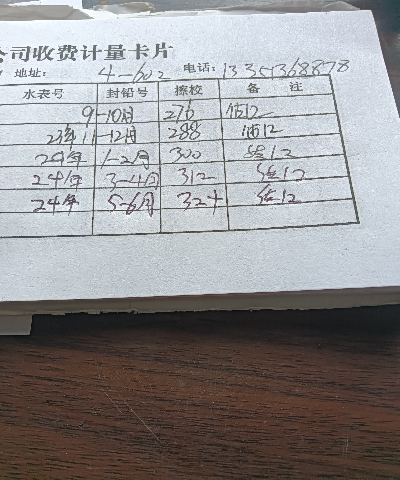 公司收费计量卡片
地址: 4-602 电话: 13354368878
水表号 封铅号 擦校 备 注
9-10月 276 估12
23年11-12月 288 估12
24年 1-2月 300 估12
24年 3-4月 312 估12
24年 5-6月 324 估12